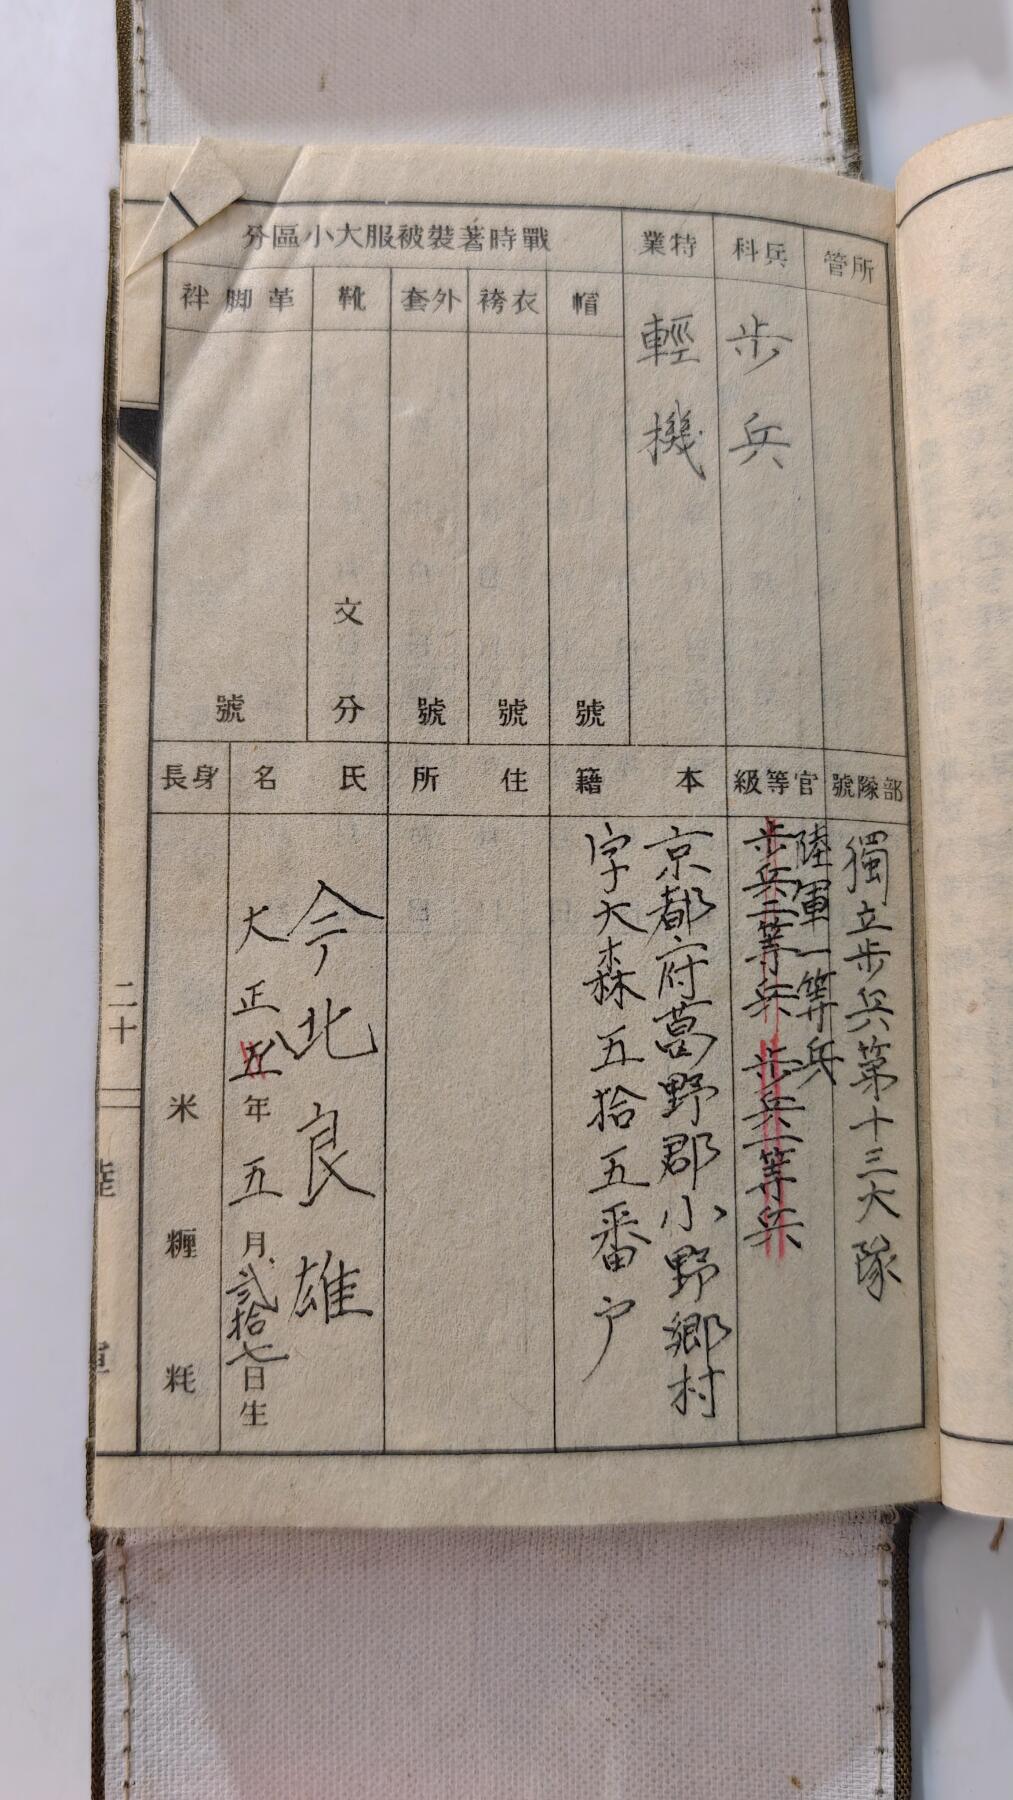 所管
兵科
歩兵
特業
輕機
戰時著裝被服大小區分
帽
號
衣袴
號
外套
號
靴
文
分
革脚絆
號
部隊號
獨立歩兵第十三大隊
官等級
陸軍一等兵
歩兵二等兵 歩兵一等兵
本籍
京都府葛野郡小野郷村
字大森五拾五番戸
住所
氏名
今北良雄
大正五八年五月貳拾七日生
身長
米
糎
粍
二十
陸
軍